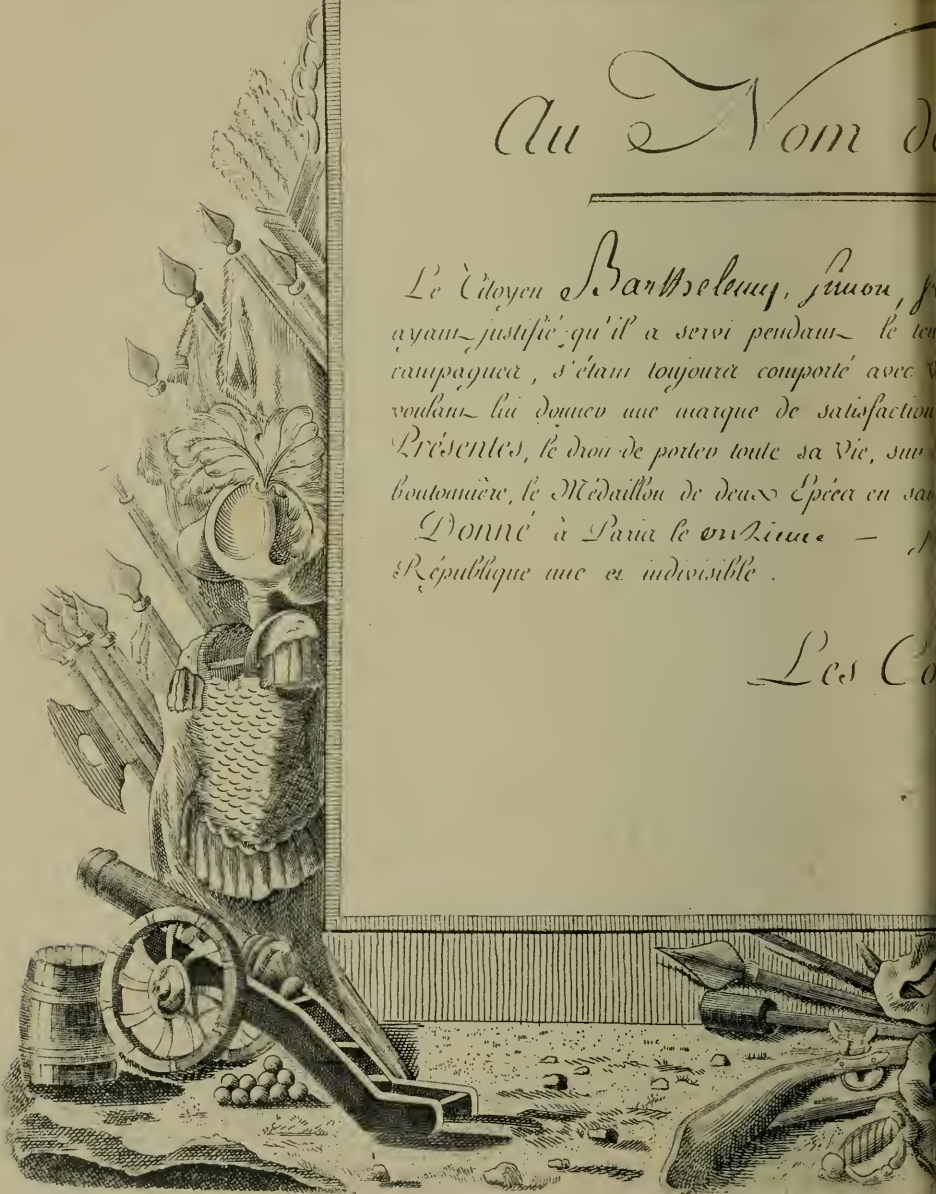 Au Nom de
Le Citoyen Barthelemy, Simon,
ayant justifié qu'il a servi pendant le
campagnes, s'étant toujours comporté avec
voulant lui donner une marque de satisfaction
Présentes, le droit de porter toute sa Vie, sur
boutonnière, le Médaillon de deux Epées en
Donné à Paris le onzieme —
République une et indivisible.
Les Co